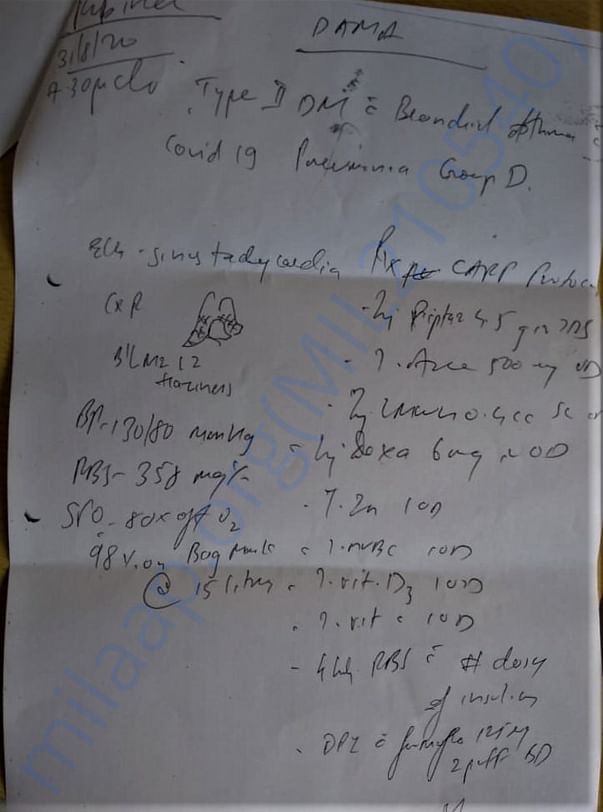 DAMA
31/8/20
7.30pm
Type II DM c̄ Bronchial Asthma
Covid 19 Pneumonia Group D.
ECG - sinus tachycardia
Rx CARP Protocol
CXR
- Inj Piptaz 4.5 gm TDS
B/L MZ LZ
haziness
- T. Azee 500 mg OD
- Inj 0.4cc SC
BP - 130/80 mmHg
- Inj Dexa 6mg OD
RBS - 358 mg%
SPO2 - 80% off O2
- T. Zn 1OD
98% on Bag Mask
- T. MVBC 1OD
@ 15 litres
- T. vit. D3 1OD
- T. vit C 1OD
- 4 hly RBS c̄ # dose
of insulin
- DPI c̄
2 puff BD
milaap.org(MIL3105407)